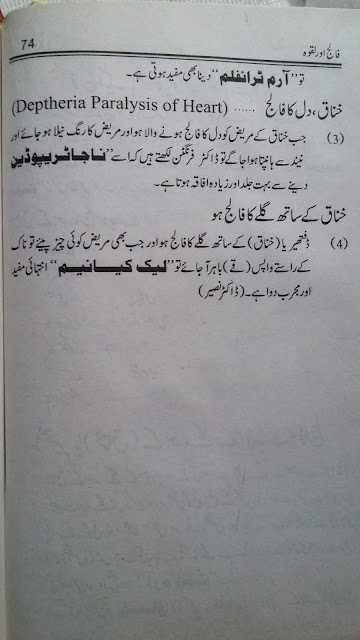 74 فالج اور لقوہ
تو ”آرم ٹرائفلم“ دینا بھی مفید ہوتی ہے۔
خناق، دل کا فالج ...... (Deptheria Paralysis of Heart)
(3) جب خناق کے مریض کو دل کا فالج ہونے والا ہو اور مریض کا رنگ نیلا ہو جائے اور
نیند سے ہانپتا ہوا جاگے تو ڈاکٹر فرنگٹن لکھتے ہیں کہ اسے ”ناجا ٹریپوڈین
دینے سے بہت جلد اور زیادہ افاقہ ہوتا ہے۔
خناق کے ساتھ گلے کا فالج ہو
(4) ڈفتھیریا (خناق) کے ساتھ گلے کا فالج ہو اور جب بھی مریض کوئی چیز پیئے تو ناک
کے راستے واپس (قے) باہر آ جائے تو ”لیک کیانیم“ انتہائی مفید
اور مجرب دوا ہے۔ (ڈاکٹر نصیر)